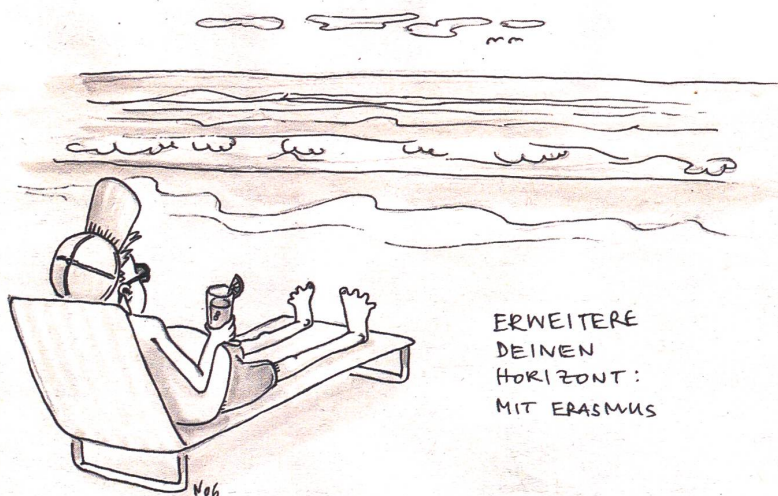 ERWEITERE
DEINEN
HORIZONT:
MIT ERASMUS